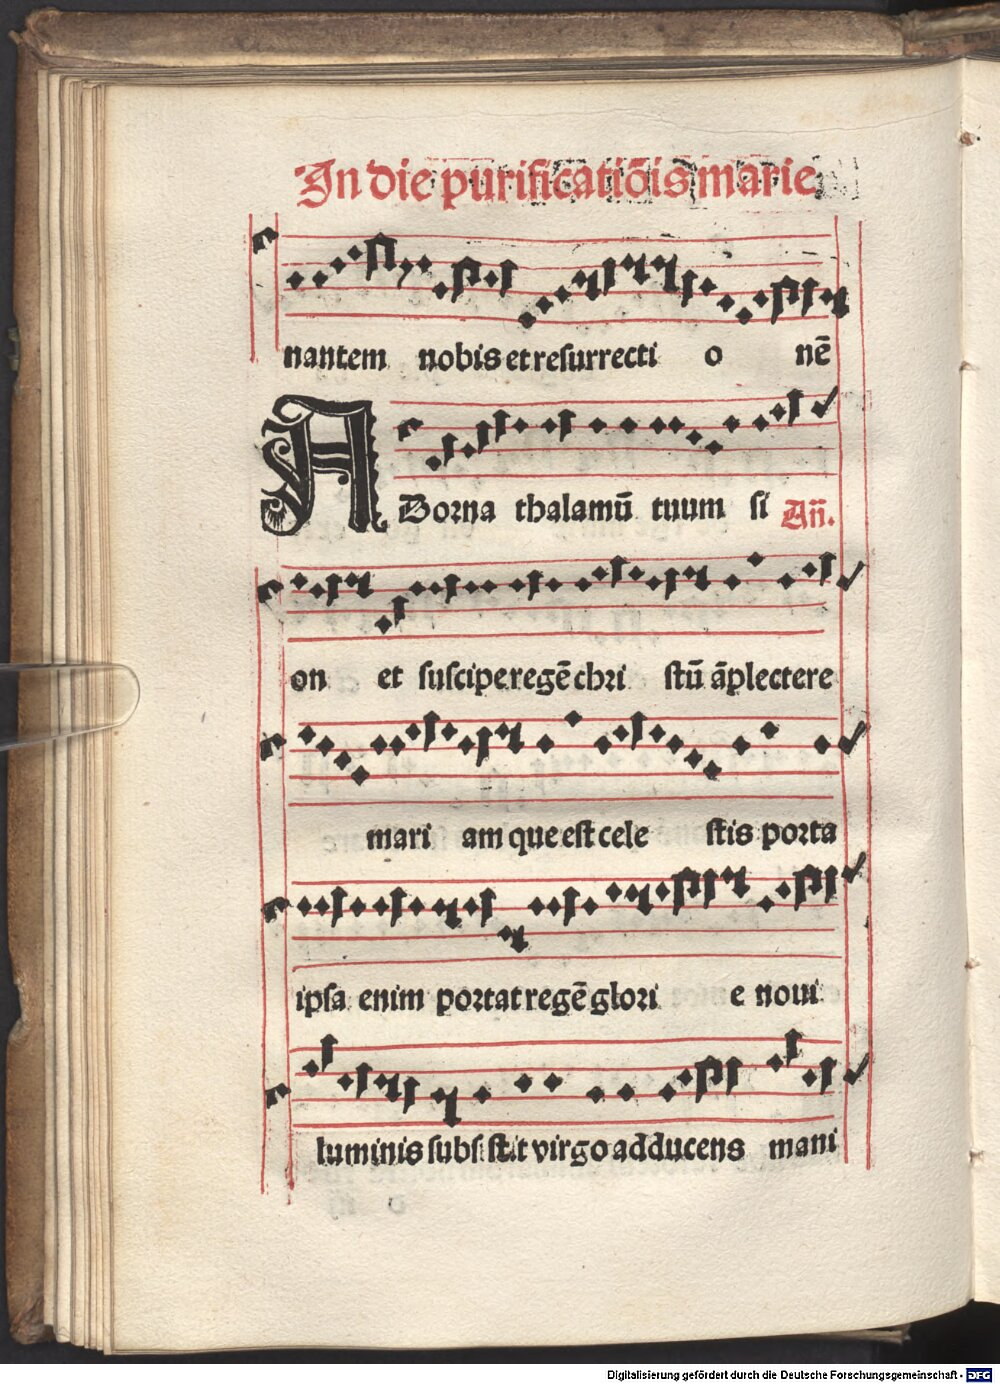 In die purificatiōis marie
nantem nobis et resurrecti o nē
ADorna thalamū tuum si Añ.
on et suscipe regē chri stū āplectere
mari am que est cele stis porta
ipsa enim portat regē glori e noui
luminis subsistit virgo adducens mani
Digitalisierung gefördert durch die Deutsche Forschungsgemeinschaft - DFG